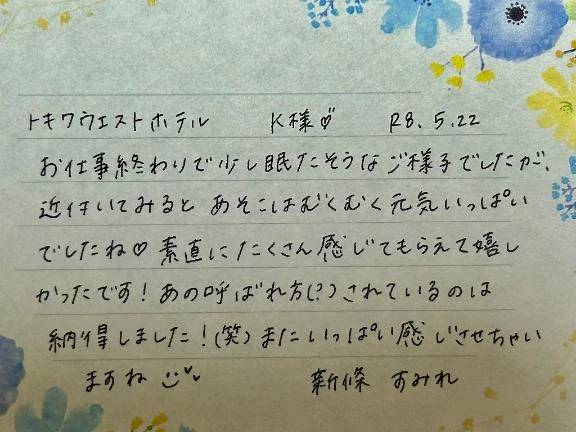 トキワウエストホテル K様♡ R8.5.22
お仕事終わりで少し眠たそうなご様子でしたが、
近付いてみると あそこはむくむく元気いっぱい
でしたね♡ 素直にたくさん感じてもらえて嬉し
かったです！あの呼ばれ方(?)されているのは
納得しました！(笑)またいっぱい感じさせちゃい
ますね 新條 すみれ